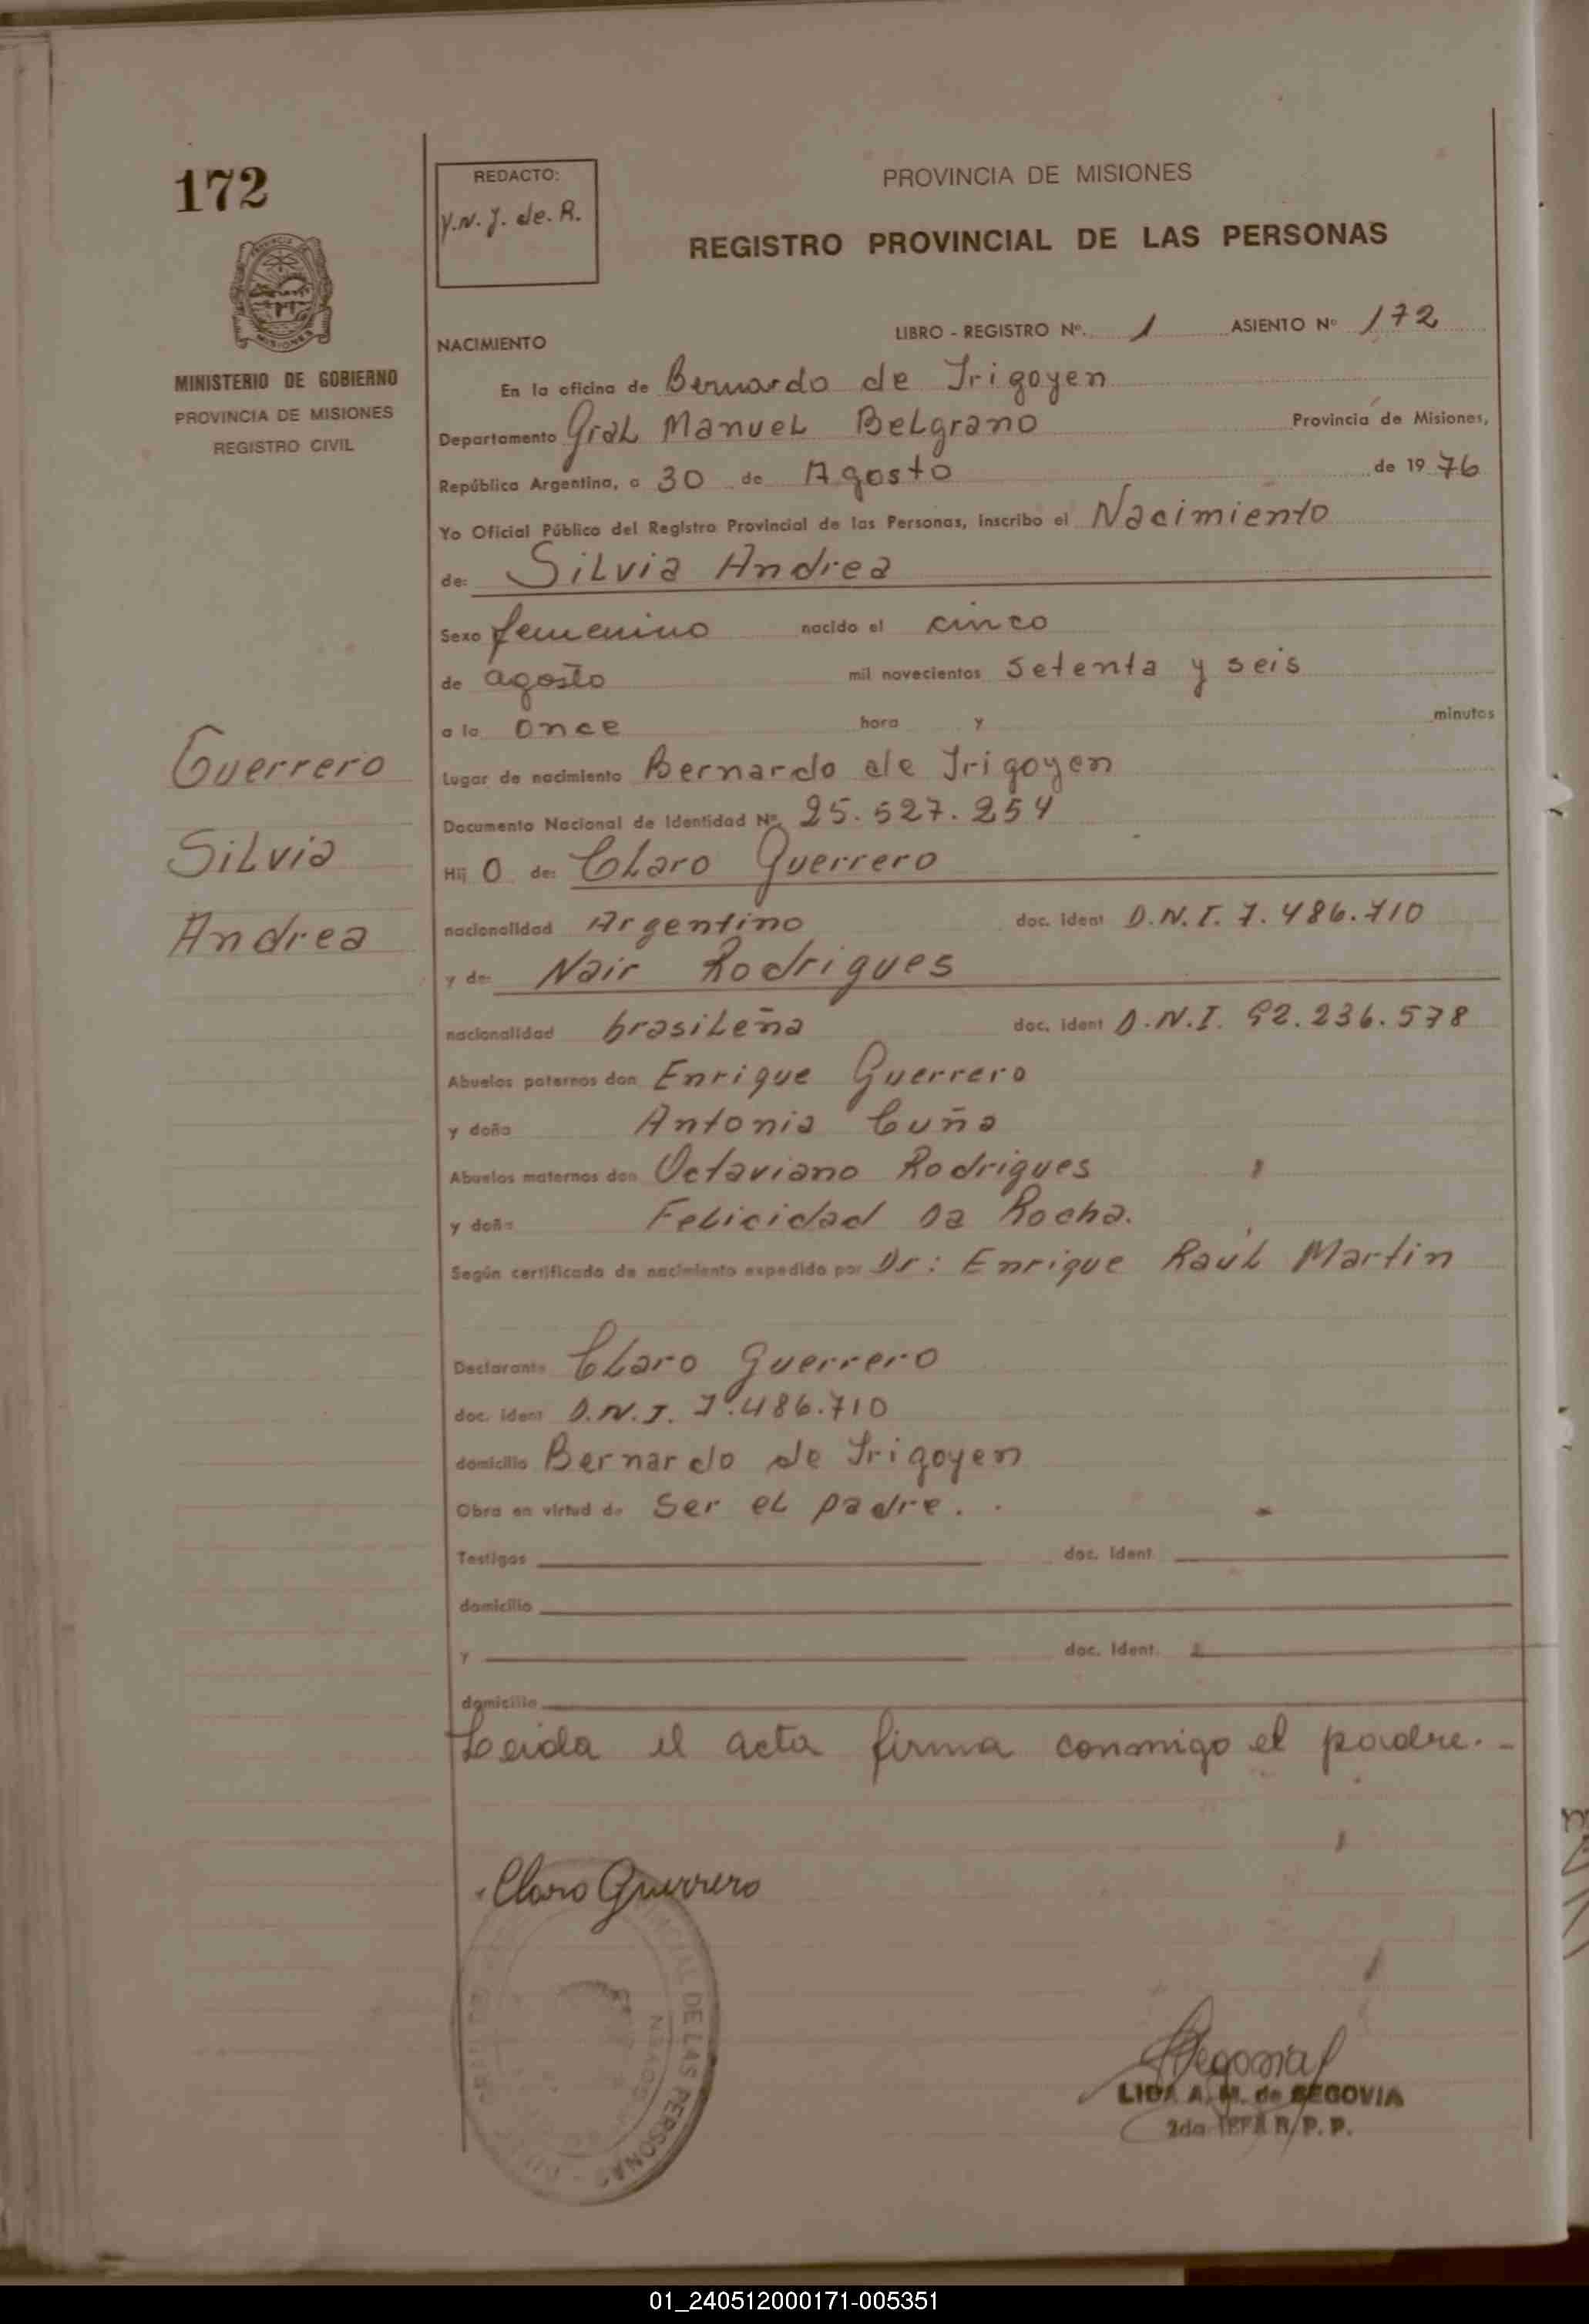 172
REDACTO:
Y.N.J. de. R.
PROVINCIA DE MISIONES
REGISTRO PROVINCIAL DE LAS PERSONAS
MINISTERIO DE GOBIERNO
PROVINCIA DE MISIONES
REGISTRO CIVIL
NACIMIENTO
LIBRO - REGISTRO Nº. 1 ASIENTO Nº 172
En la oficina de Bernardo de Irigoyen
Departamento Gral Manuel Belgrano Provincia de Misiones,
República Argentina, a 30 de Agosto de 1976
Yo Oficial Público del Registro Provincial de las Personas, inscribo el Nacimiento
de: Silvia Andrea
Sexo femenino nacido el cinco
de agosto mil novecientos setenta y seis
a la once hora y minutos
Guerrero
Silvia
Andrea
Lugar de nacimiento Bernardo de Irigoyen
Documento Nacional de Identidad Nº 25.527.254
Hij O de: Claro Guerrero
nacionalidad Argentino doc. ident D.N.I. 7.486.710
y de: Nair Rodrigues
nacionalidad brasileña doc. ident D.N.I. 92.236.578
Abuelos paternos don Enrique Guerrero
y doña Antonia Cuña
Abuelos maternos don Octaviano Rodrigues
y doña Felicidad Da Rocha.
Según certificado de nacimiento expedido por Dr: Enrique Raúl Martin
Declarante Claro Guerrero
doc. ident D.N.I. 7.486.710
domicilio Bernardo de Irigoyen
Obra en virtud de ser el padre.
Testigos doc. ident
domicilio
y doc. ident.
domicilio
Leida el acta firma conmigo el padre.-
Claro Guerrero
DE LAS PERSONAS
Segovia
LIDA A. M. de SEGOVIA
2da JEFA R.P.P.
01_240512000171-005351